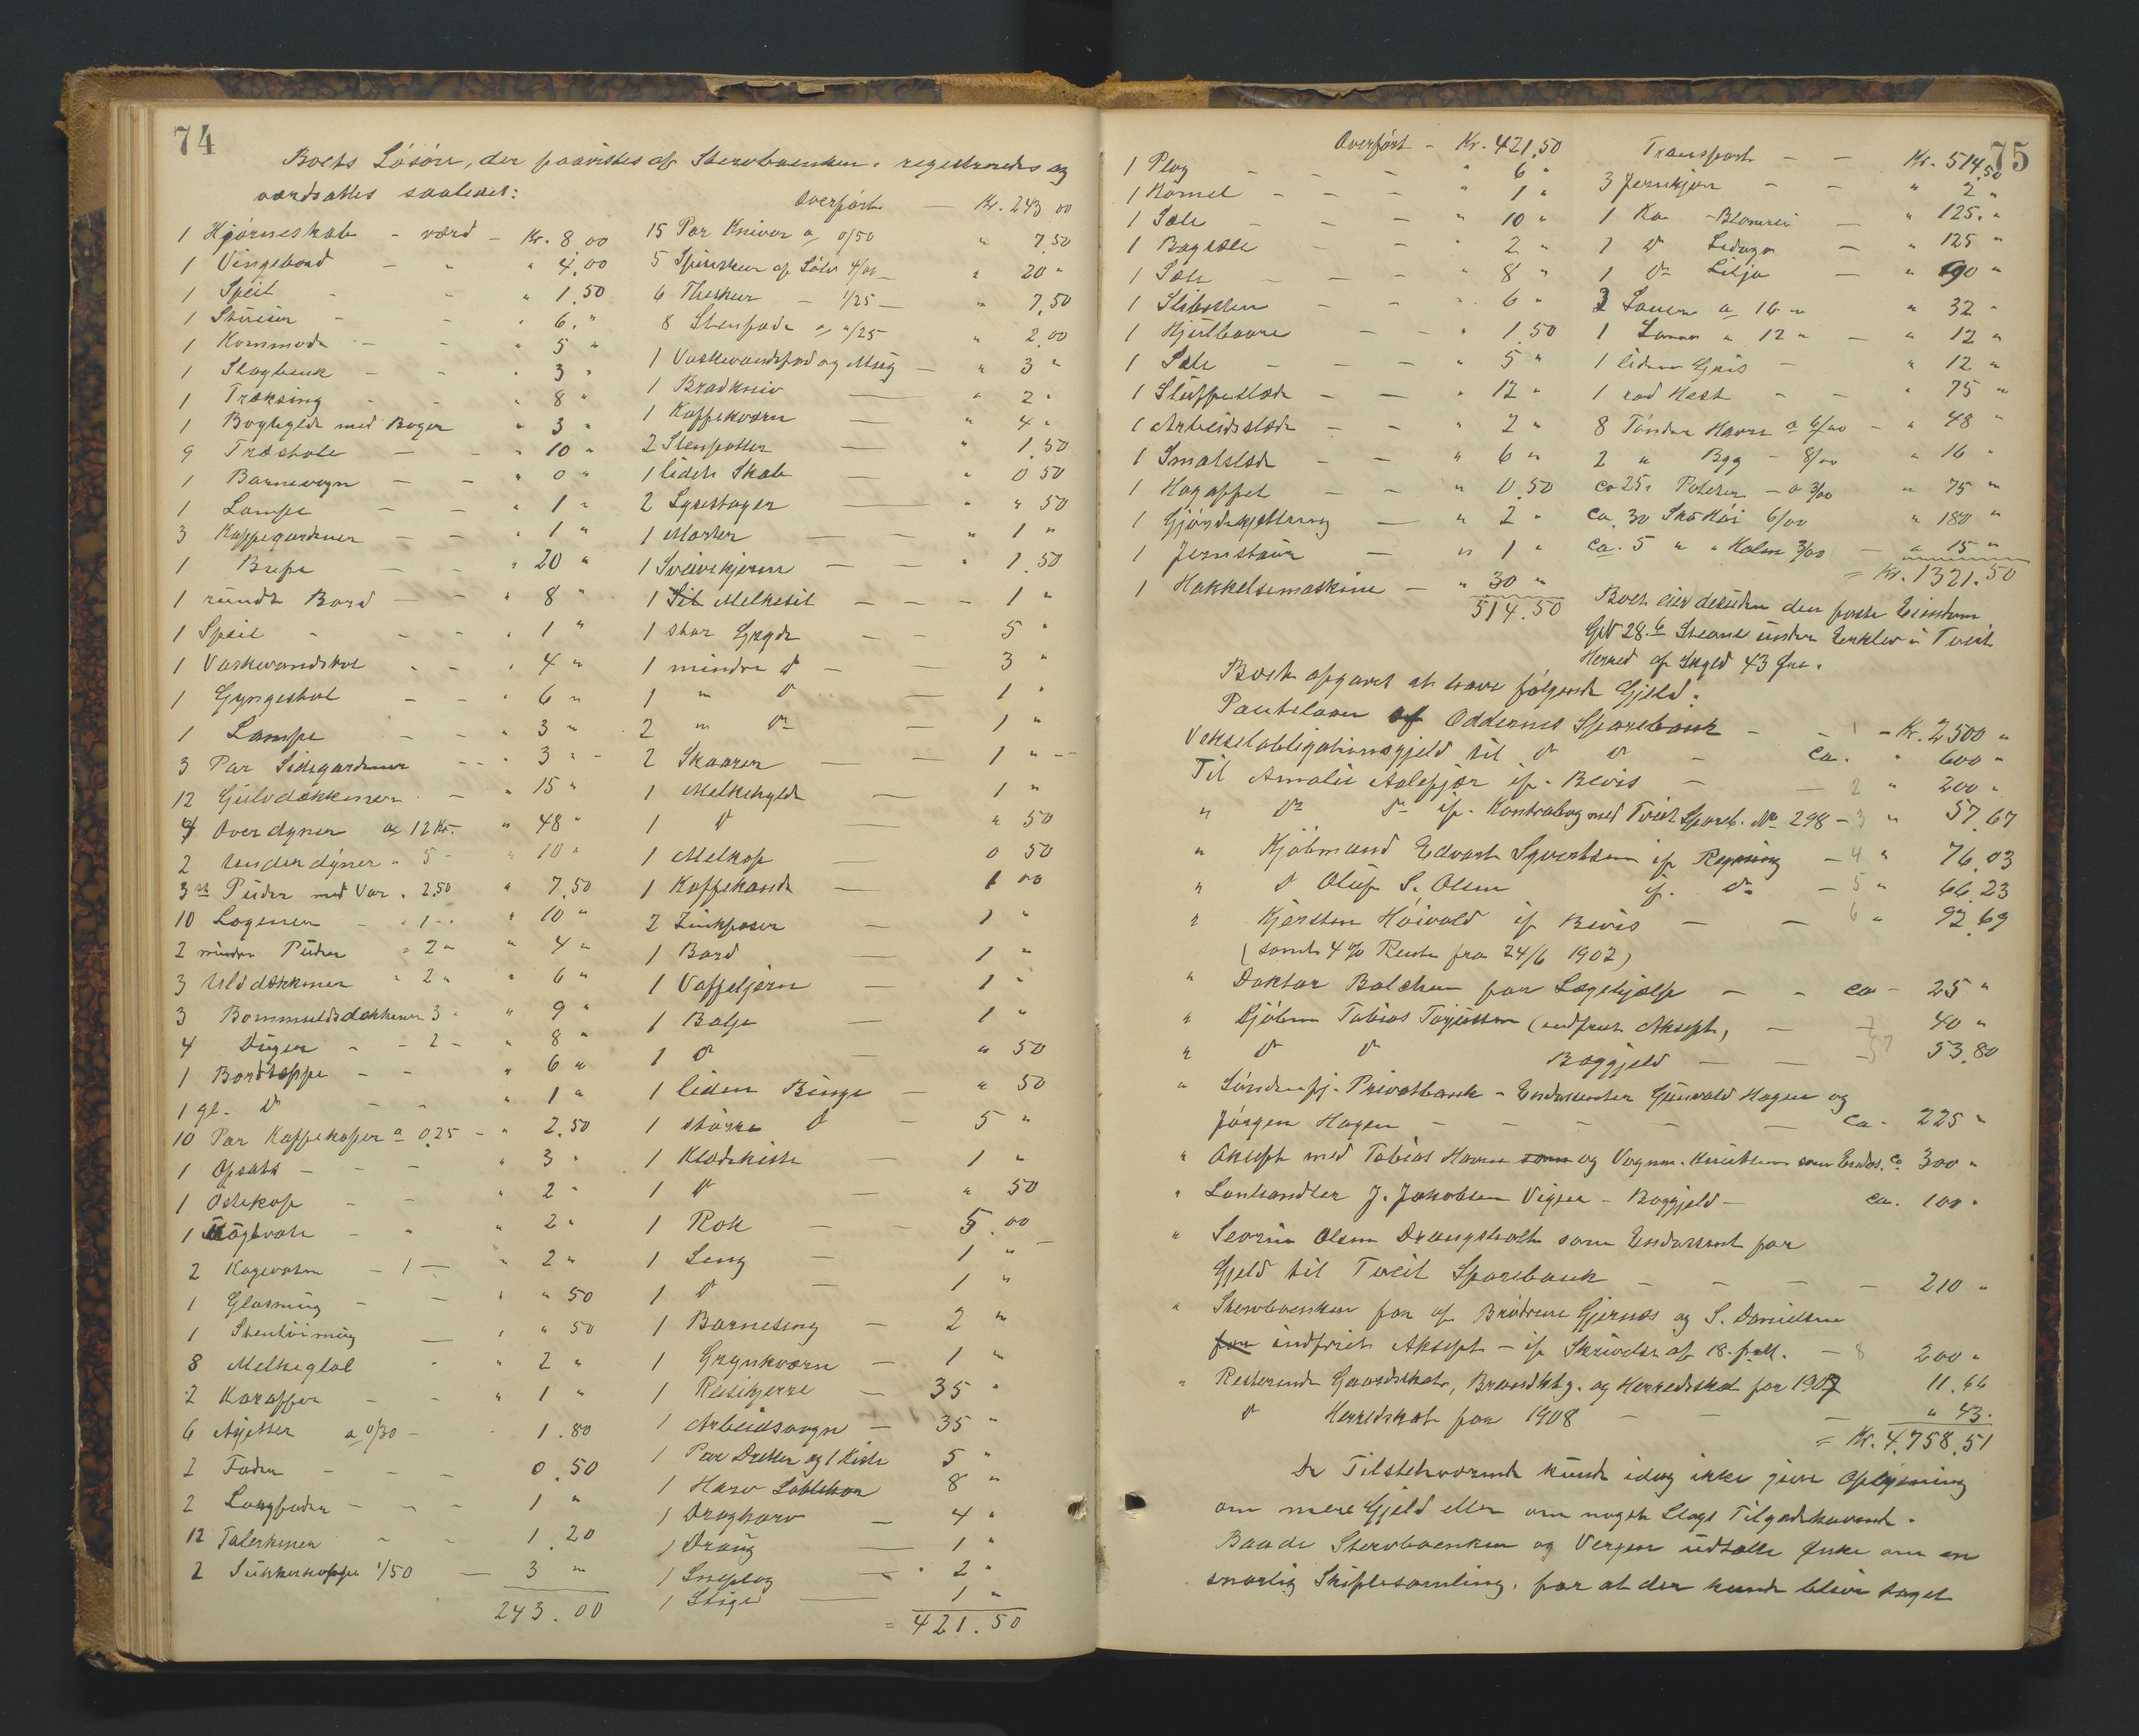 74
Boets Løsøre, der paavistes af Sterboenken, registreredes og
værdsattes saaledes:
1 Hjørneskab - værd - Kr. 8,00
1 Vingebord - " " 4,00
1 Speil - " " 1,50
1 Stueur - - " 6 "
1 Kommode - - " 5 "
1 Slagbenk - - " 3 "
1 Trækseng - - " 8 "
1 Boghylde med Bøger " 3 "
9 Træstole - - " 10 "
1 Barnevogn - - " 0 "
1 Lampe - - " 1 "
3 Kappegardiner - - " 1 "
1 Buffe - - " 20 "
1 rundt Bord - - " 8 "
1 Speil - - - " 1 "
1 Vaskevandstol - - " 4 "
1 Gyngestol - - " 6 "
1 Lampe - - " 3 "
3 Par Sidegardiner - - " 3 " -
12 Gulvdækkener - " 15 "
4 Overdyner a 12 Kr. " 48 "
2 Underdyner " 5 - " 10 "
3 st Puder med Var " 2.50 " 7,50
10 Lagener - " 1 - " " 10 "
2 mindre Puder " 2 " " 4 "
3 Ulddækkener " 2 " " 6 "
3 Bommuldsdækkener 3 " " 9 "
4 Duger - - 2 - " 8 "
1 Bordteppe - - " 6 "
1 gl. do - - " 1 "
10 Par Kaffekopper a 0,25 - " 2,50
1 Opsats - - - " 3 "
1 Ostekop - - " 2 "
1 Røgevatn - " " 2 "
2 Kagevatn - 1 - " 2 "
1 Glasmug - - " " 50
1 Stentøimug - " " 50
8 Melkeglas " " 2 "
2 Karafler - - " 1 "
6 Asjetter a 0/30 - - 1.80
2 Fade - - - 0.50
2 Langfade - - - 1 "
12 Talerkener - - 1.20
2 Sukkerkoppe 1/50 - 3 "
243.00
Overført - Kr. 243 00
15 Par Kniver a 0/50 " 7,50
5 Spiseskeer af Sølv 4/00 - " 20 "
6 Theskeer - 1/25 - " 7,50
8 Stenfade a "/25 " 2,00
1 Vaskevandsfad og Mug - " 3 "
1 Brødkniv - " 2 "
1 Kaffekværn - " 4 "
2 Stenpotter - " 1.50
1 lidet Skab - " 0 50
2 Lysestager - " " 50
1 Morter - - " 1 "
1 Sveivekjerne - - " 1.50
1 Sil Melkesil - - - 1 "
1 stor Gryde - - 5 "
1 mindre do - - 3 "
1 " do - 1 "
2 " do - 1 "
2 Skaarer - - 1 " -
1 Melkehylde - 1 "
1 do - " 50
1 Melkop - 0 50
1 Kaffekande - 1 00
2 Zinkposer - 1 "
1 Bord - 1 "
1 Vaffeljern - 1 "
1 Balje - 1 "
1 do - " 50
1 liden Binge - " 50
1 større do - 5 "
1 Klædekiste - 1 "
1 do - " 50
1 Rok - - 5.00
1 Seng - 1 "
1 do - 1 "
1 Barneseng - 2 "
1 Grynkværn - 1 "
1 Reisekjerre - 35 "
1 Arbeidsvogn - 35 "
1 Par Dretter og 1 Kiste 5 "
1 Harv 8 "
1 Dragharv - 4 "
1 Draug - 1 "
1 Sneplog - " 2 "
1 Stige - 1 "
= 421.50
75
Overført - Kr. 421,50
1 Plog - - - " 6 "
1 Hømel - - - " 1 "
1 Sæle - - - " 10 "
1 Bogsæle - - " 2 "
1 Sæle - - - " 8 "
1 Slibesten - - " 6 "
1 Hjulbaare - - " 1,50
1 Sæle - - - " 5 "
1 Sluffeslæde - - " 12 "
1 Arbeidsslæde - - " 2 "
1 Smalslæde - - " 6 "
1 Høgaffel - - " 0,50
1 Gjøndekjetting - " 2 "
1 Jernstaur - " 1 "
1 Hakkelsemaskine - " 30 "
514.50
Transport - - Kr. 514,50
3 Jernkjør - - " 2 "
1 Ko - Blomrei - " 125 "
1 do Lidago - " 125 "
1 do Lilja - " 90 "
2 Sauer a 16 " " 32 "
1 Lam a 12 " - " 12 "
1 liden Gris - " 12 "
1 rød Hest - - " 75 "
8 Tønder Havre a 6/00 - " 48 "
2 " Byg - 8/00 " 16 "
ca 25 " Poteter - a 3/00 " 75 "
ca. 30 Sk℔ Høi 6/00 " 180 "
ca. 5 " " Halm 3/00 - " 15 "
= Kr. 1321.50
Boet eier desuden den faste Eiendom
GN 28.6 Steane under Erklev i Tveit
Herred af Skyld 43 Øre.
Boet opgaves at have følgende Gjeld:
Pantelaan af Oddernes Sparebank - - 1 - Kr. 2500 "
Vekselobligationsgjeld til do do - ca. " 600 "
Til Amalie Aalefjær if. Bevis - - 2 " 200 "
" do do if. Kontrabog med Tveit Spareb. No 298 - 3 " 57,67
" Kjøbmand Edvart Syvertsen if Regning - 4 " 76,03
" do Oluf S. Olsen if. do - 5 " 66,23
" Kjersten Høivold if Bevis - - 6 " 92,69
(samt 4 % Rente fra 24/6 1902)
" Doktor Balchen for Lægehjælp - - ca - 25 "
" Kjøbm Tobias Torjussen (indfriet Aksept, - 7 40 "
" do do Boggjeld - - 53,80
" Søndenfj. Privatbank - Endossenter Gunvald Hagen og
Jørgen Hagen - - - - - ca - 225 "
" Aksept med Tobias Haven som og Vognm. Knutsen som Endos. ca 300 "
" Lanhandler J. Jakobsen Vigen - Boggjeld - ca. 100 "
" Severin Olsen Drangsholt som Endossent for
Gjeld til Tveit Sparebank - - - - 210 "
" Sterboenken for af Brødrene Gjernæs og S. Danielsen
for indfriet Aksept - if Skrivelse af 18. f.M. - 8 200 "
" Resterende Gaardskat, Brandktg. og Herredsskat for 1907 11.66
do Herredskat for 1908 - - - " 43.
= Kr. 4,758,51
De Tilstedeværende kunde idag ikke give Oplysning
om mere Gjeld eller om noget Slags Tilgodehavende.
Baade Sterboenken og Vergen udtalte Ønske om en
snarlig Skiftesamling, for at der kunde bleve taget